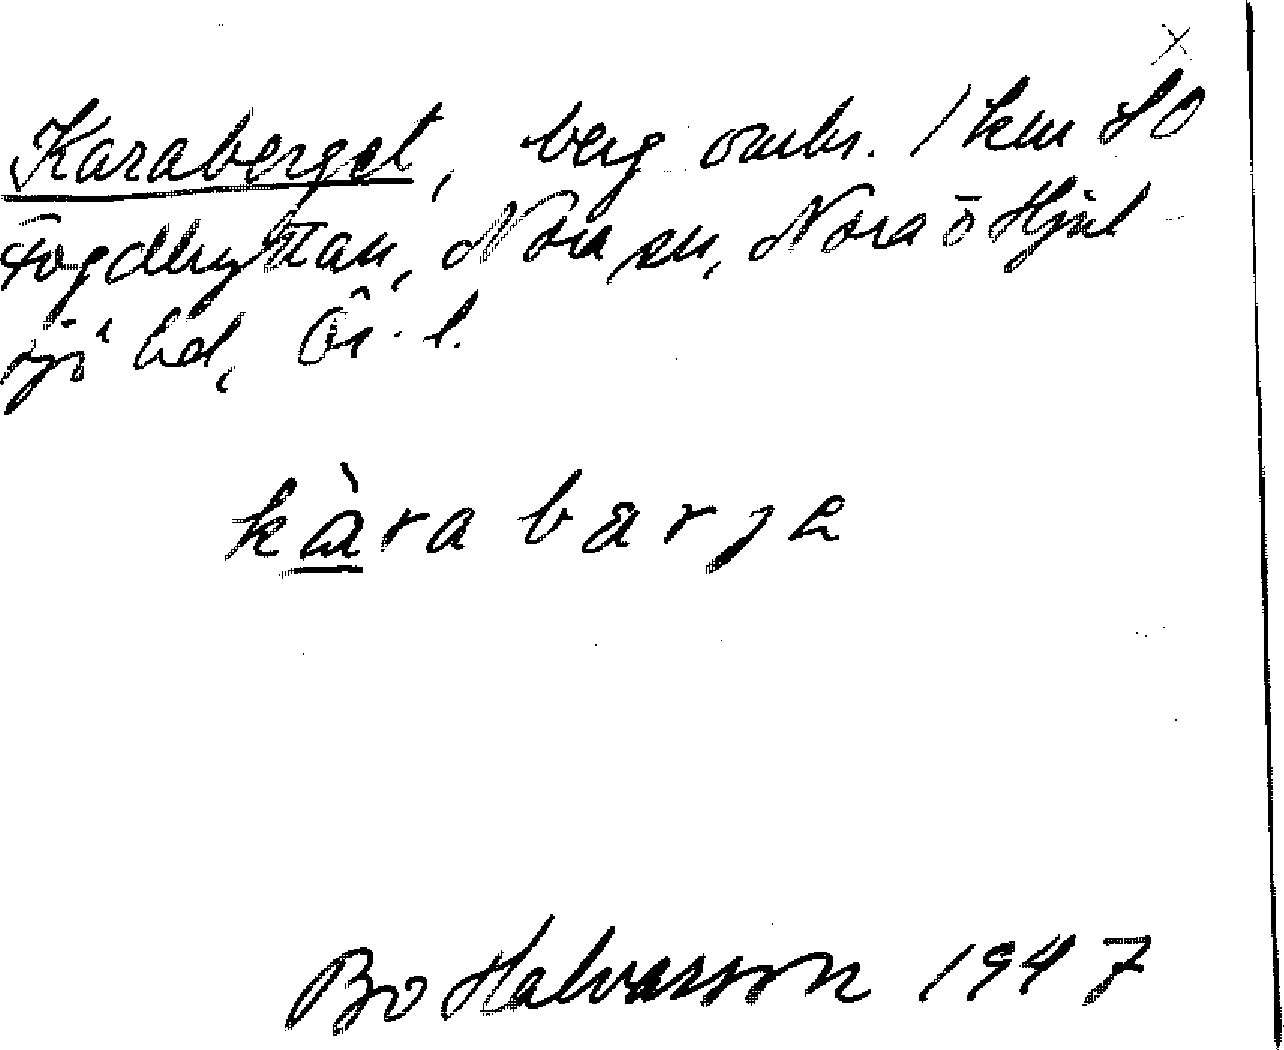 x
Karaberget, berg omkr. 1 km SO
Fogdhyttan, Nora sn, Nora ö Hjul-
sjö hd, Ör. l.
kàra bärje
Bo Halvarsson 1947